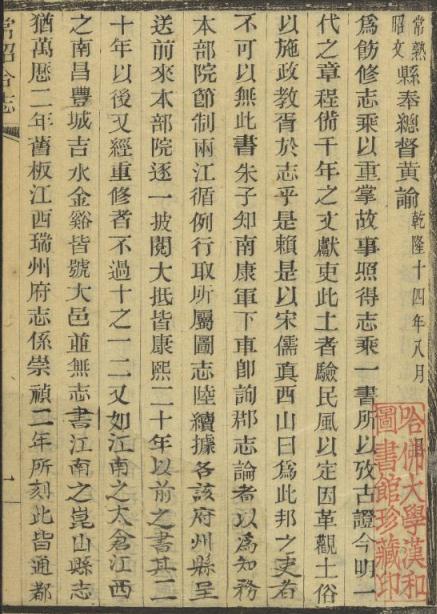 常熟昭文縣奉總督黃諭 乾隆十四年八月 日
為飭修志乘以重掌故事照得志乘一書所以攷古證今明一
代之章程備千年之文獻吏此土者驗民風以定因革觀士俗
以施政教胥於志乎是賴是以宋儒真西山曰為此邦之吏者
不可以無此書朱子知南康軍下車卽詢郡志論者以為知務
本部院節制兩江循例行取所屬圖志陸續據各該府州縣呈
送前來本部院逐一披閱大抵皆康熙二十年以前之書其二
十年以後又經重修者不過十之一二又如江南之太倉江西
之南昌豐城吉水金谿皆號大邑並無志書江南之崑山縣志
猶萬厯二年舊板江西瑞州府志係崇禎二年所刻此皆通都
常昭合志
一
哈佛大學漢和
圖書館珍藏印